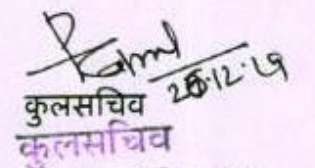 26.12.19
कुलसचिव
कुलसचिव